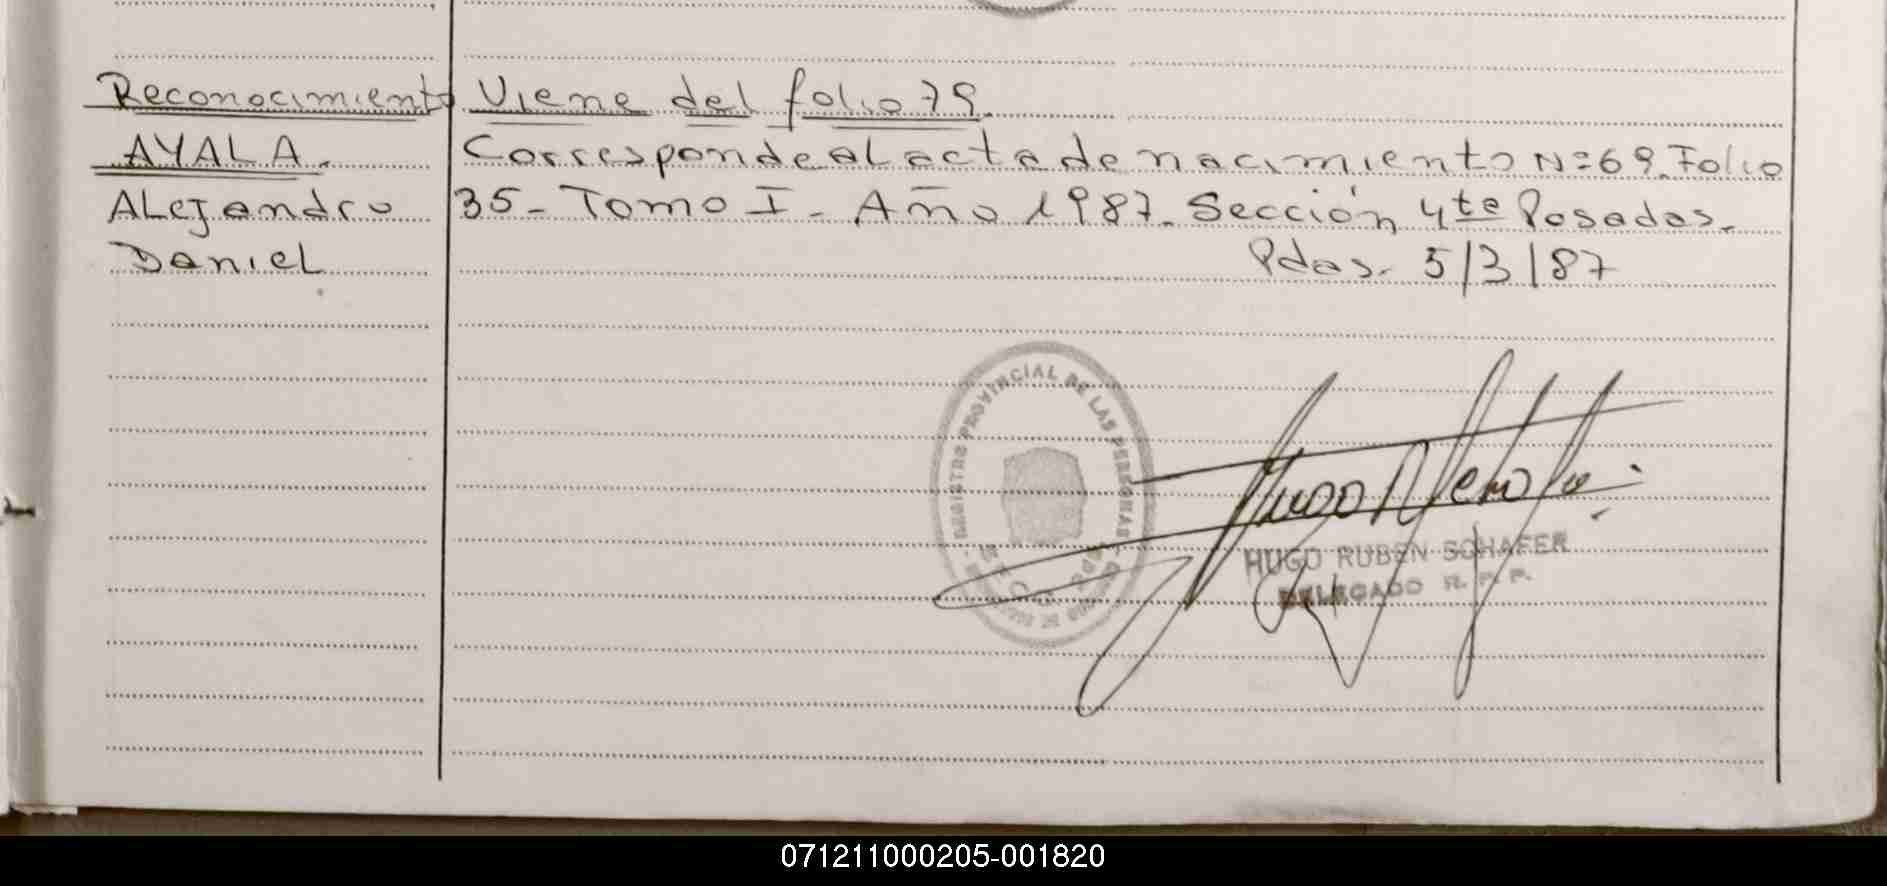 Reconocimiento Viene del folio 79.
AYALA. Corresponde al acta de nacimiento Nº 69. Folio
Alejandro 35- Tomo I- Año 1987. Sección 4ta Posadas.
Daniel Pdas. 5/3/87
REGISTRO PROVINCIAL DE LAS PERSONAS
HUGO RUBEN SCHAFER
DELEGADO R. P. P.
071211000205-001820